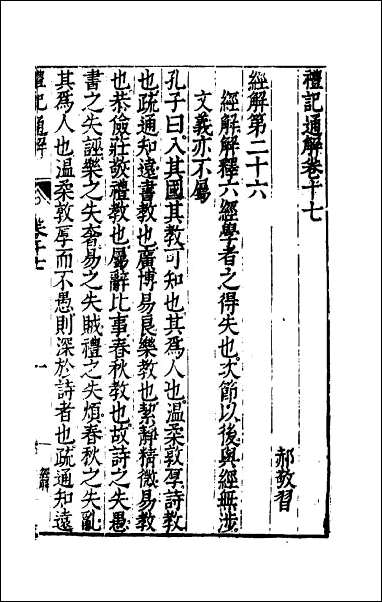 禮記通解卷十七
郝敬習
經解第二十六
經解解釋六經學者之得失也次節以後與經無涉
文義亦不屬
孔子曰入其國其教可知也其為人也溫柔敦厚詩教
也疏通知遠書教也廣博易良樂教也絜靜精微易教
也恭儉莊敬禮教也屬辭比事春秋教也故詩之失愚
書之失誣樂之失奢易之失賊禮之失煩春秋之失亂
其為人也溫柔敦厚而不愚則深於詩者也疏通知遠
禮記通解
卷十七
一
經解